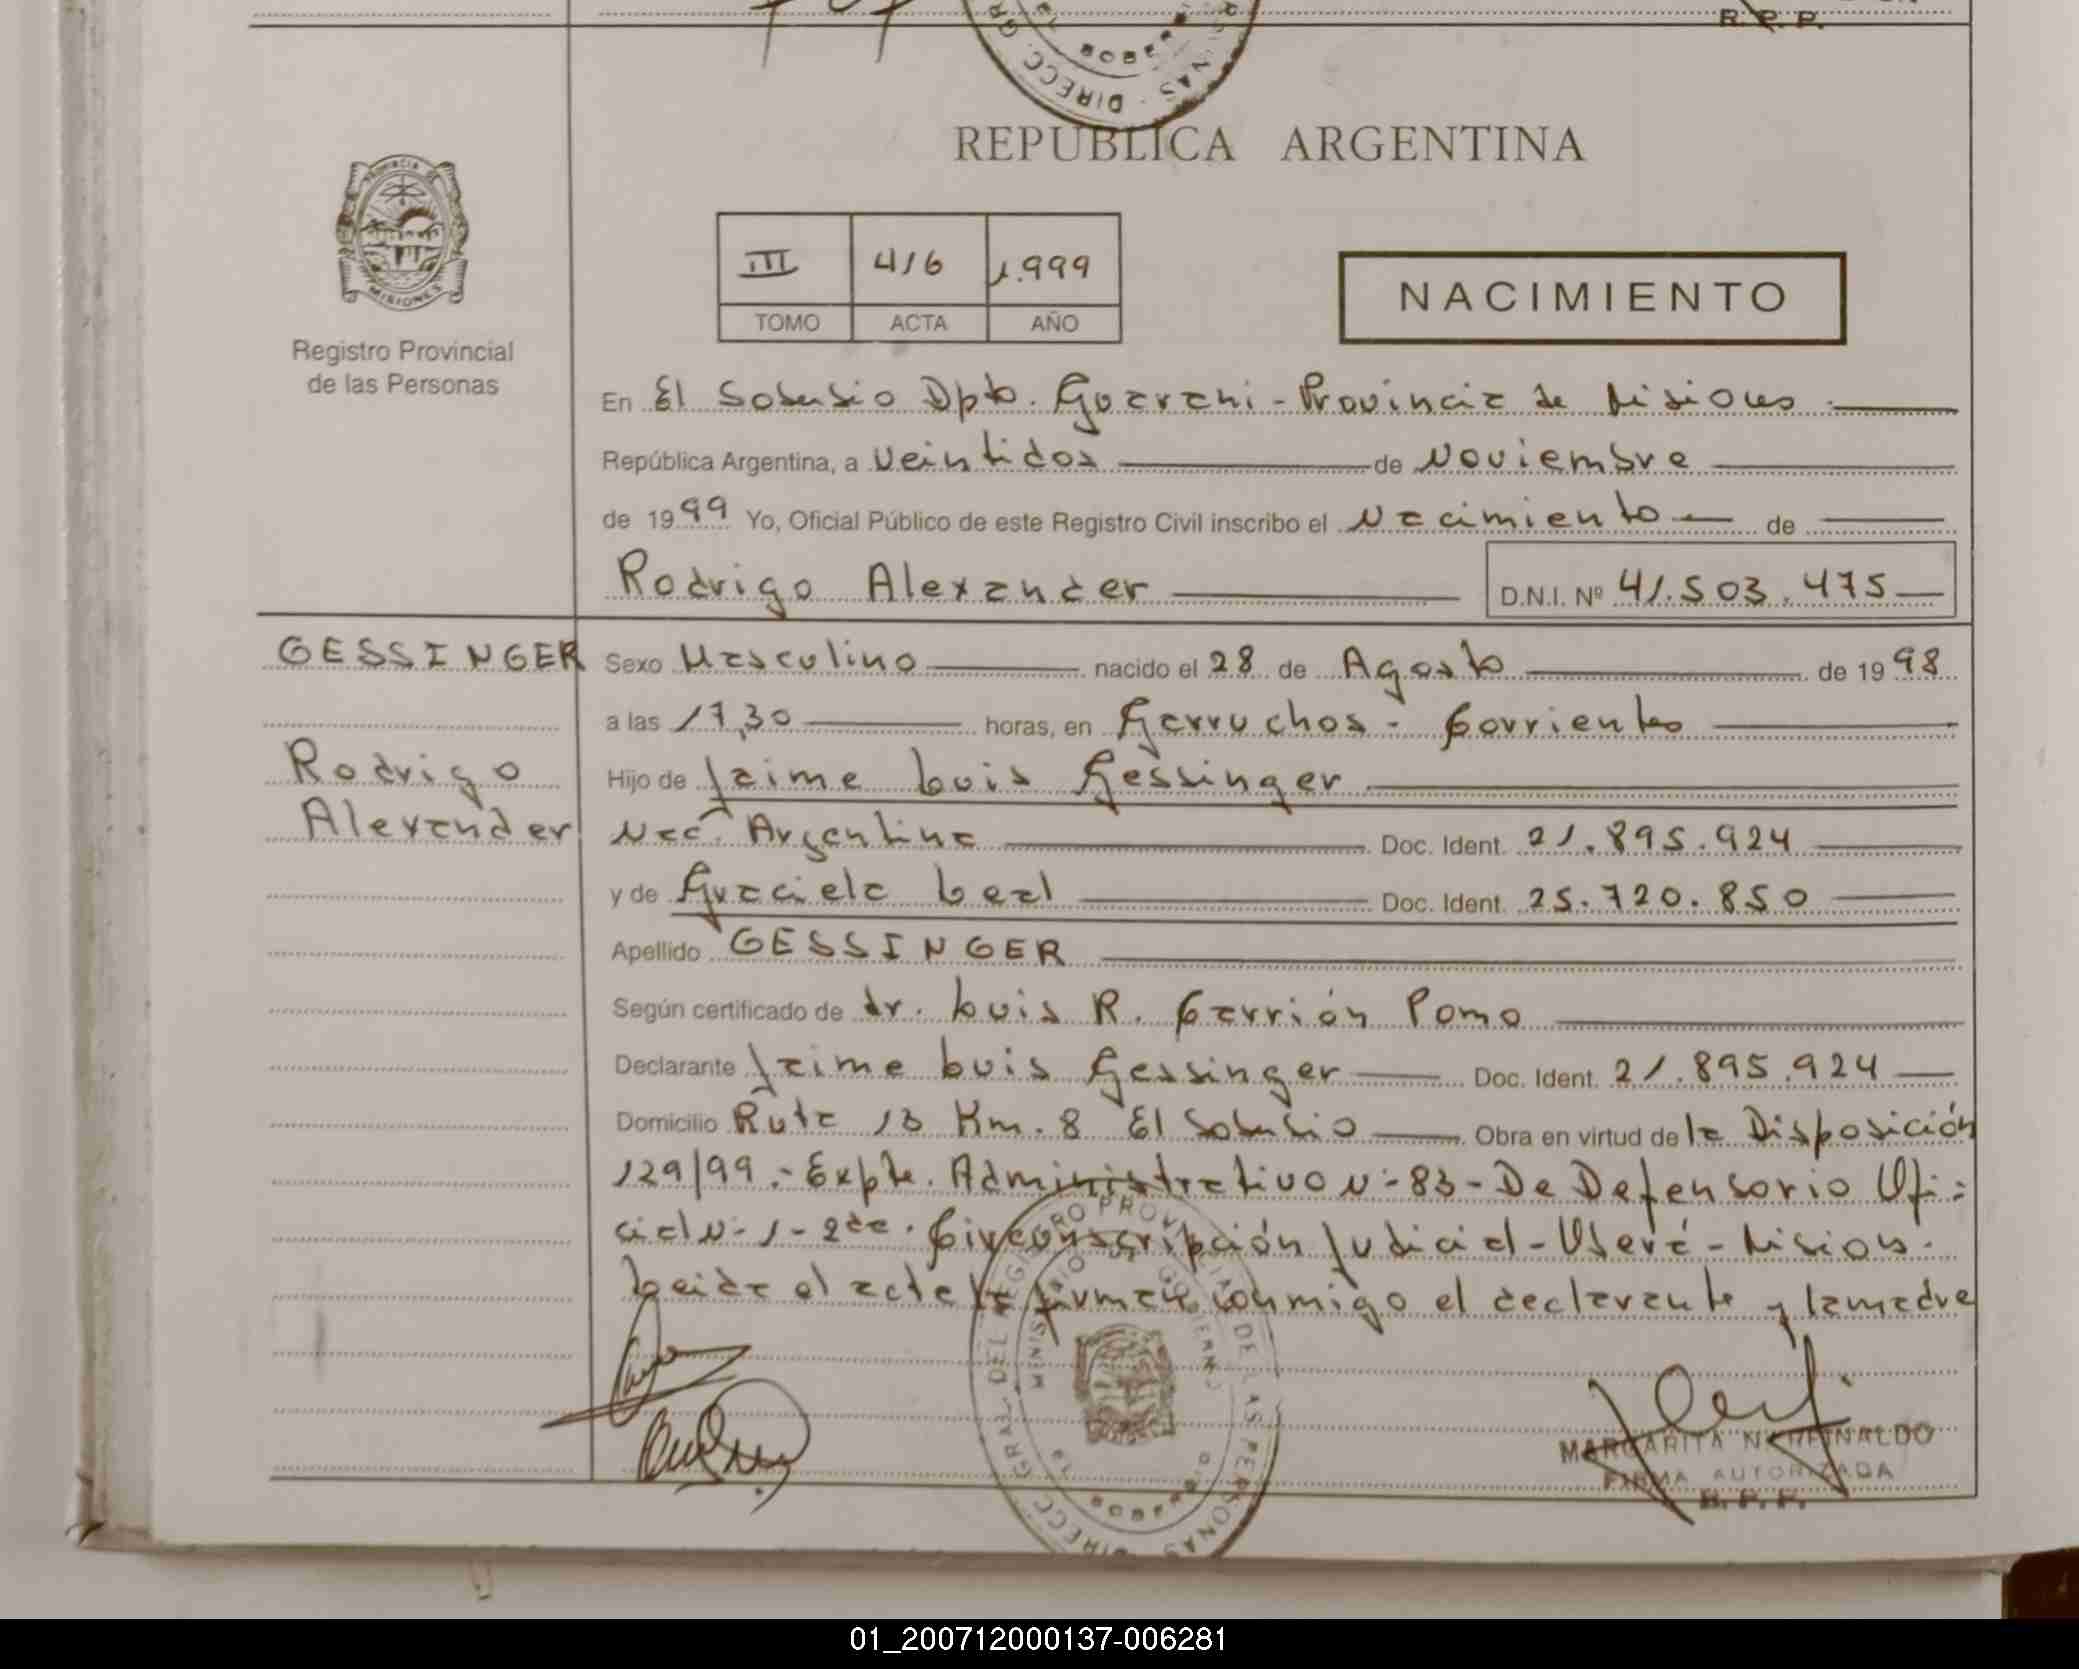 R. P. P.
DIRECC. GR
NAS
REPUBLICA ARGENTINA
PROVINCIA DE
MISIONES
III 416 1.999
TOMO ACTA AÑO
NACIMIENTO
Registro Provincial
de las Personas
En El Soberbio Dpto. Guarani - Provincia de Misiones
República Argentina, a Veintidos de Noviembre
de 1999 Yo, Oficial Público de este Registro Civil inscribo el Nacimiento de
Rodrigo Alexander D.N.I. Nº 41.503.475
GESSINGER
Rodrigo
Alexander
Sexo Masculino nacido el 28 de Agosto de 1998
a las 17,30 horas, en Garruchos - Corrientes
Hijo de Jaime Luis Gessinger
Nac. Argentina Doc. Ident. 21.895.924
y de Graciela Leal Doc. Ident. 25.720.850
Apellido GESSINGER
Según certificado de dr. Luis R. Carrión Pomo
Declarante Jaime Luis Gessinger Doc. Ident. 21.895.924
Domicilio Ruta 13 Km. 8 El Soberbio Obra en virtud de la Disposición
129/99.- Expte. Administrativo Nº 83 - De Defensorio Ofi-
cial Nº 1 - 2da. Circunscripción Judicial - Oberá - Misiones.
Leida el acta la firman conmigo el declarante y la madre
DIRECC. GRAL. DEL REGISTRO PROVINCIAL DE LAS PERSONAS
MINISTERIO DE GOBIERNO
MARGARITA N. REINALDO
FIRMA AUTORIZADA
R. P. P.
01_200712000137-006281